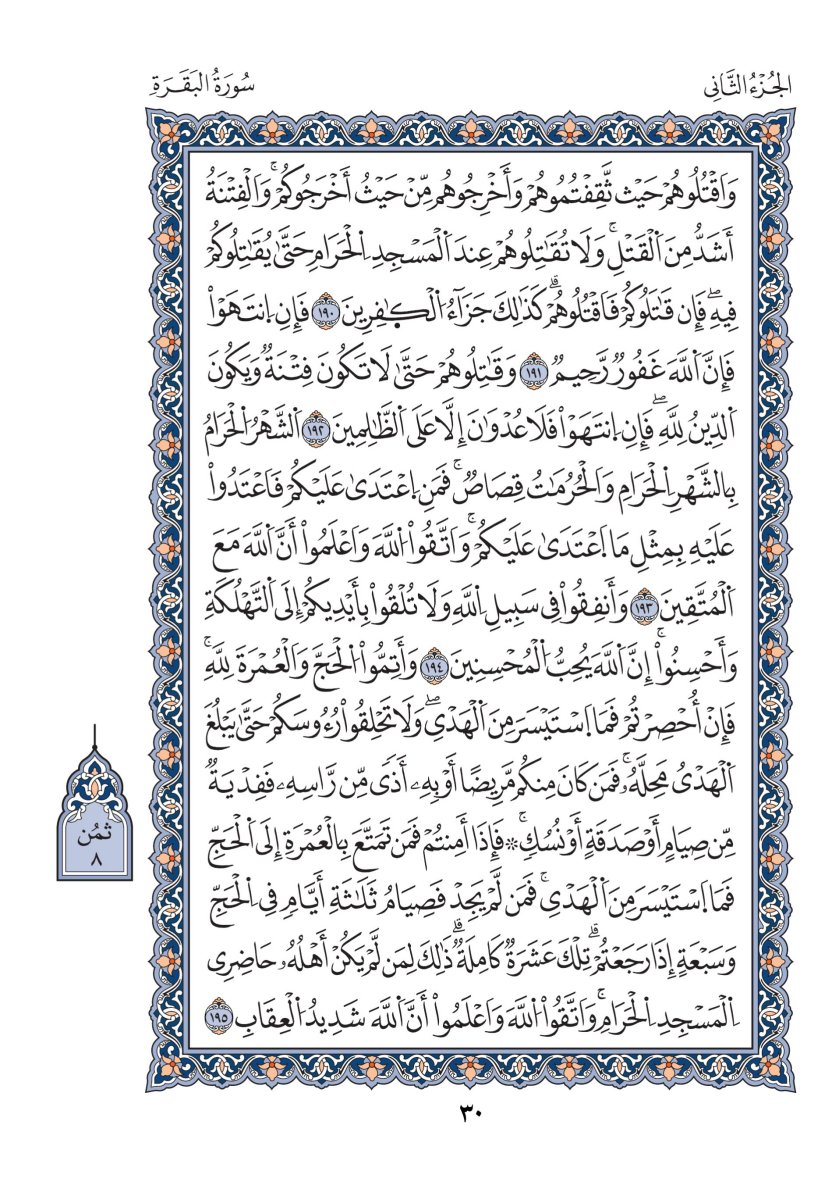 الجُزْءُ الثَّانِي
سُورَةُ البَقَرَةِ
وَاَقْتُلُوهُمْ حَيْث ثَّقِفْتُمُوهُمْ وَأَخْرِجُوهُم مِّنْ حَيْثُ أَخْرَجُوكُمْۚ وَاَلْفِتْنَةُ
أَشَدُّ مِنَ اَلْقَتْلِۚ وَلَا تُقَٰتِلُوهُمْ عِندَ اَلْمَسْجِدِ اِلْحَرَامِ حَتَّىٰ يُقَٰتِلُوكُمْ
فِيهِۖ فَإِن قَٰتَلُوكُمْ فَاقْتُلُوهُمْۗ كَذَٰلِكَ جَزَآءُ اُلْكٰ۪فِرِينَ ١٩٠ فَإِنِ اِنتَهَوْاْ
فَإِنَّ اَللَّهَ غَفُورٌ رَّحِيمٌ ١٩١ وَقَٰتِلُوهُمْ حَتَّىٰ لَا تَكُونَ فِتْنَةٌ وَيَكُونَ
اَلدِّينُ لِلَّهِۖ فَإِنِ اِنتَهَوْاْ فَلَا عُدْوَٰنَ إِلَّا عَلَى اَلظَّٰلِمِينَ ١٩٢ اَلشَّهْرُ اُلْحَرَامُ
بِالشَّهْرِ اِلْحَرَامِ وَالْحُرُمَٰتُ قِصَاصٌۚ فَمَنِ اِعْتَدَىٰ عَلَيْكُمْ فَاعْتَدُواْ
عَلَيْهِ بِمِثْلِ مَا اَعْتَدَىٰ عَلَيْكُمْۚ وَاَتَّقُواْ اُللَّهَ وَاَعْلَمُواْ أَنَّ اَللَّهَ مَعَ
اَلْمُتَّقِينَ ١٩٣ وَأَنفِقُواْ فِي سَبِيلِ اِللَّهِ وَلَا تُلْقُواْ بِأَيْدِيكُمْ إِلَى اَلتَّهْلُكَةِ
وَأَحْسِنُوٓاْۚ إِنَّ اَللَّهَ يُحِبُّ اُلْمُحْسِنِينَ ١٩٤ وَأَتِمُّواْ اُلْحَجَّ وَالْعُمْرَةَ لِلَّهِۚ
فَإِنْ أُحْصِرْتُمْ فَمَا اَسْتَيْسَرَ مِنَ اَلْهَدْيِۖ وَلَا تَحْلِقُواْ رُءُوسَكُمْ حَتَّىٰ يَبْلُغَ
اَلْهَدْيُ مَحِلَّهُۥۚ فَمَن كَانَ مِنكُم مَّرِيضًا أَوْ بِهِۦ أَذًى مِّن رَّاسِهِۦ فَفِدْيَةٌ
مِّن صِيَامٍ أَوْ صَدَقَةٍ أَوْ نُسُكٍۚ ۞ فَإِذَا أَمِنتُمْ فَمَن تَمَتَّعَ بِالْعُمْرَةِ إِلَى اَلْحَجِّ
فَمَا اَسْتَيْسَرَ مِنَ اَلْهَدْيِۚ فَمَن لَّمْ يَجِدْ فَصِيَامُ ثَلَٰثَةِ أَيَّامٍ فِي اِلْحَجِّ
وَسَبْعَةٍ إِذَا رَجَعْتُمْۗ تِلْكَ عَشَرَةٌ كَامِلَةٌۗ ذَٰلِكَ لِمَن لَّمْ يَكُنْ أَهْلُهُۥ حَاضِرِي
اِلْمَسْجِدِ اِلْحَرَامِۚ وَاَتَّقُواْ اُللَّهَ وَاَعْلَمُواْ أَنَّ اَللَّهَ شَدِيدُ اُلْعِقَابِ ١٩٥
ثمُن
٨
٣٠